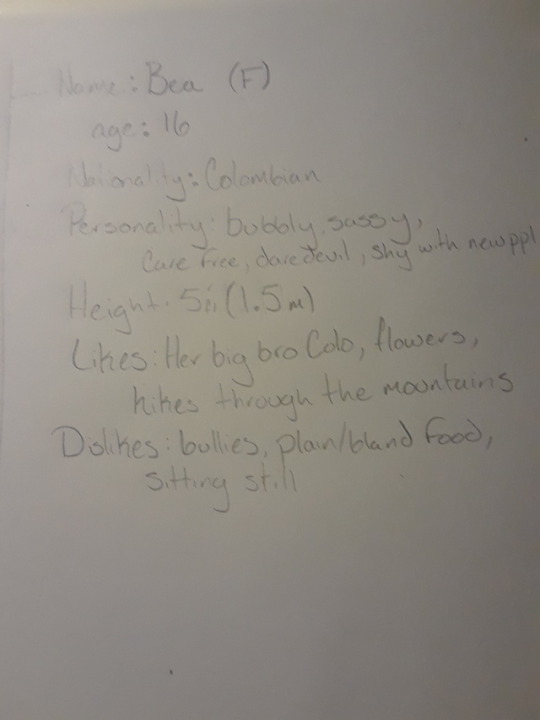 Name: Bea (F)
age: 16
Nationality: Colombian
Personality: bubbly, sassy,
Care free, daredevil, shy with new ppl
Height: 5ii (1.5m)
Likes: Her big bro Colo, flowers,
hikes through the mountains
Dislikes: bullies, plain/bland food,
Sitting still